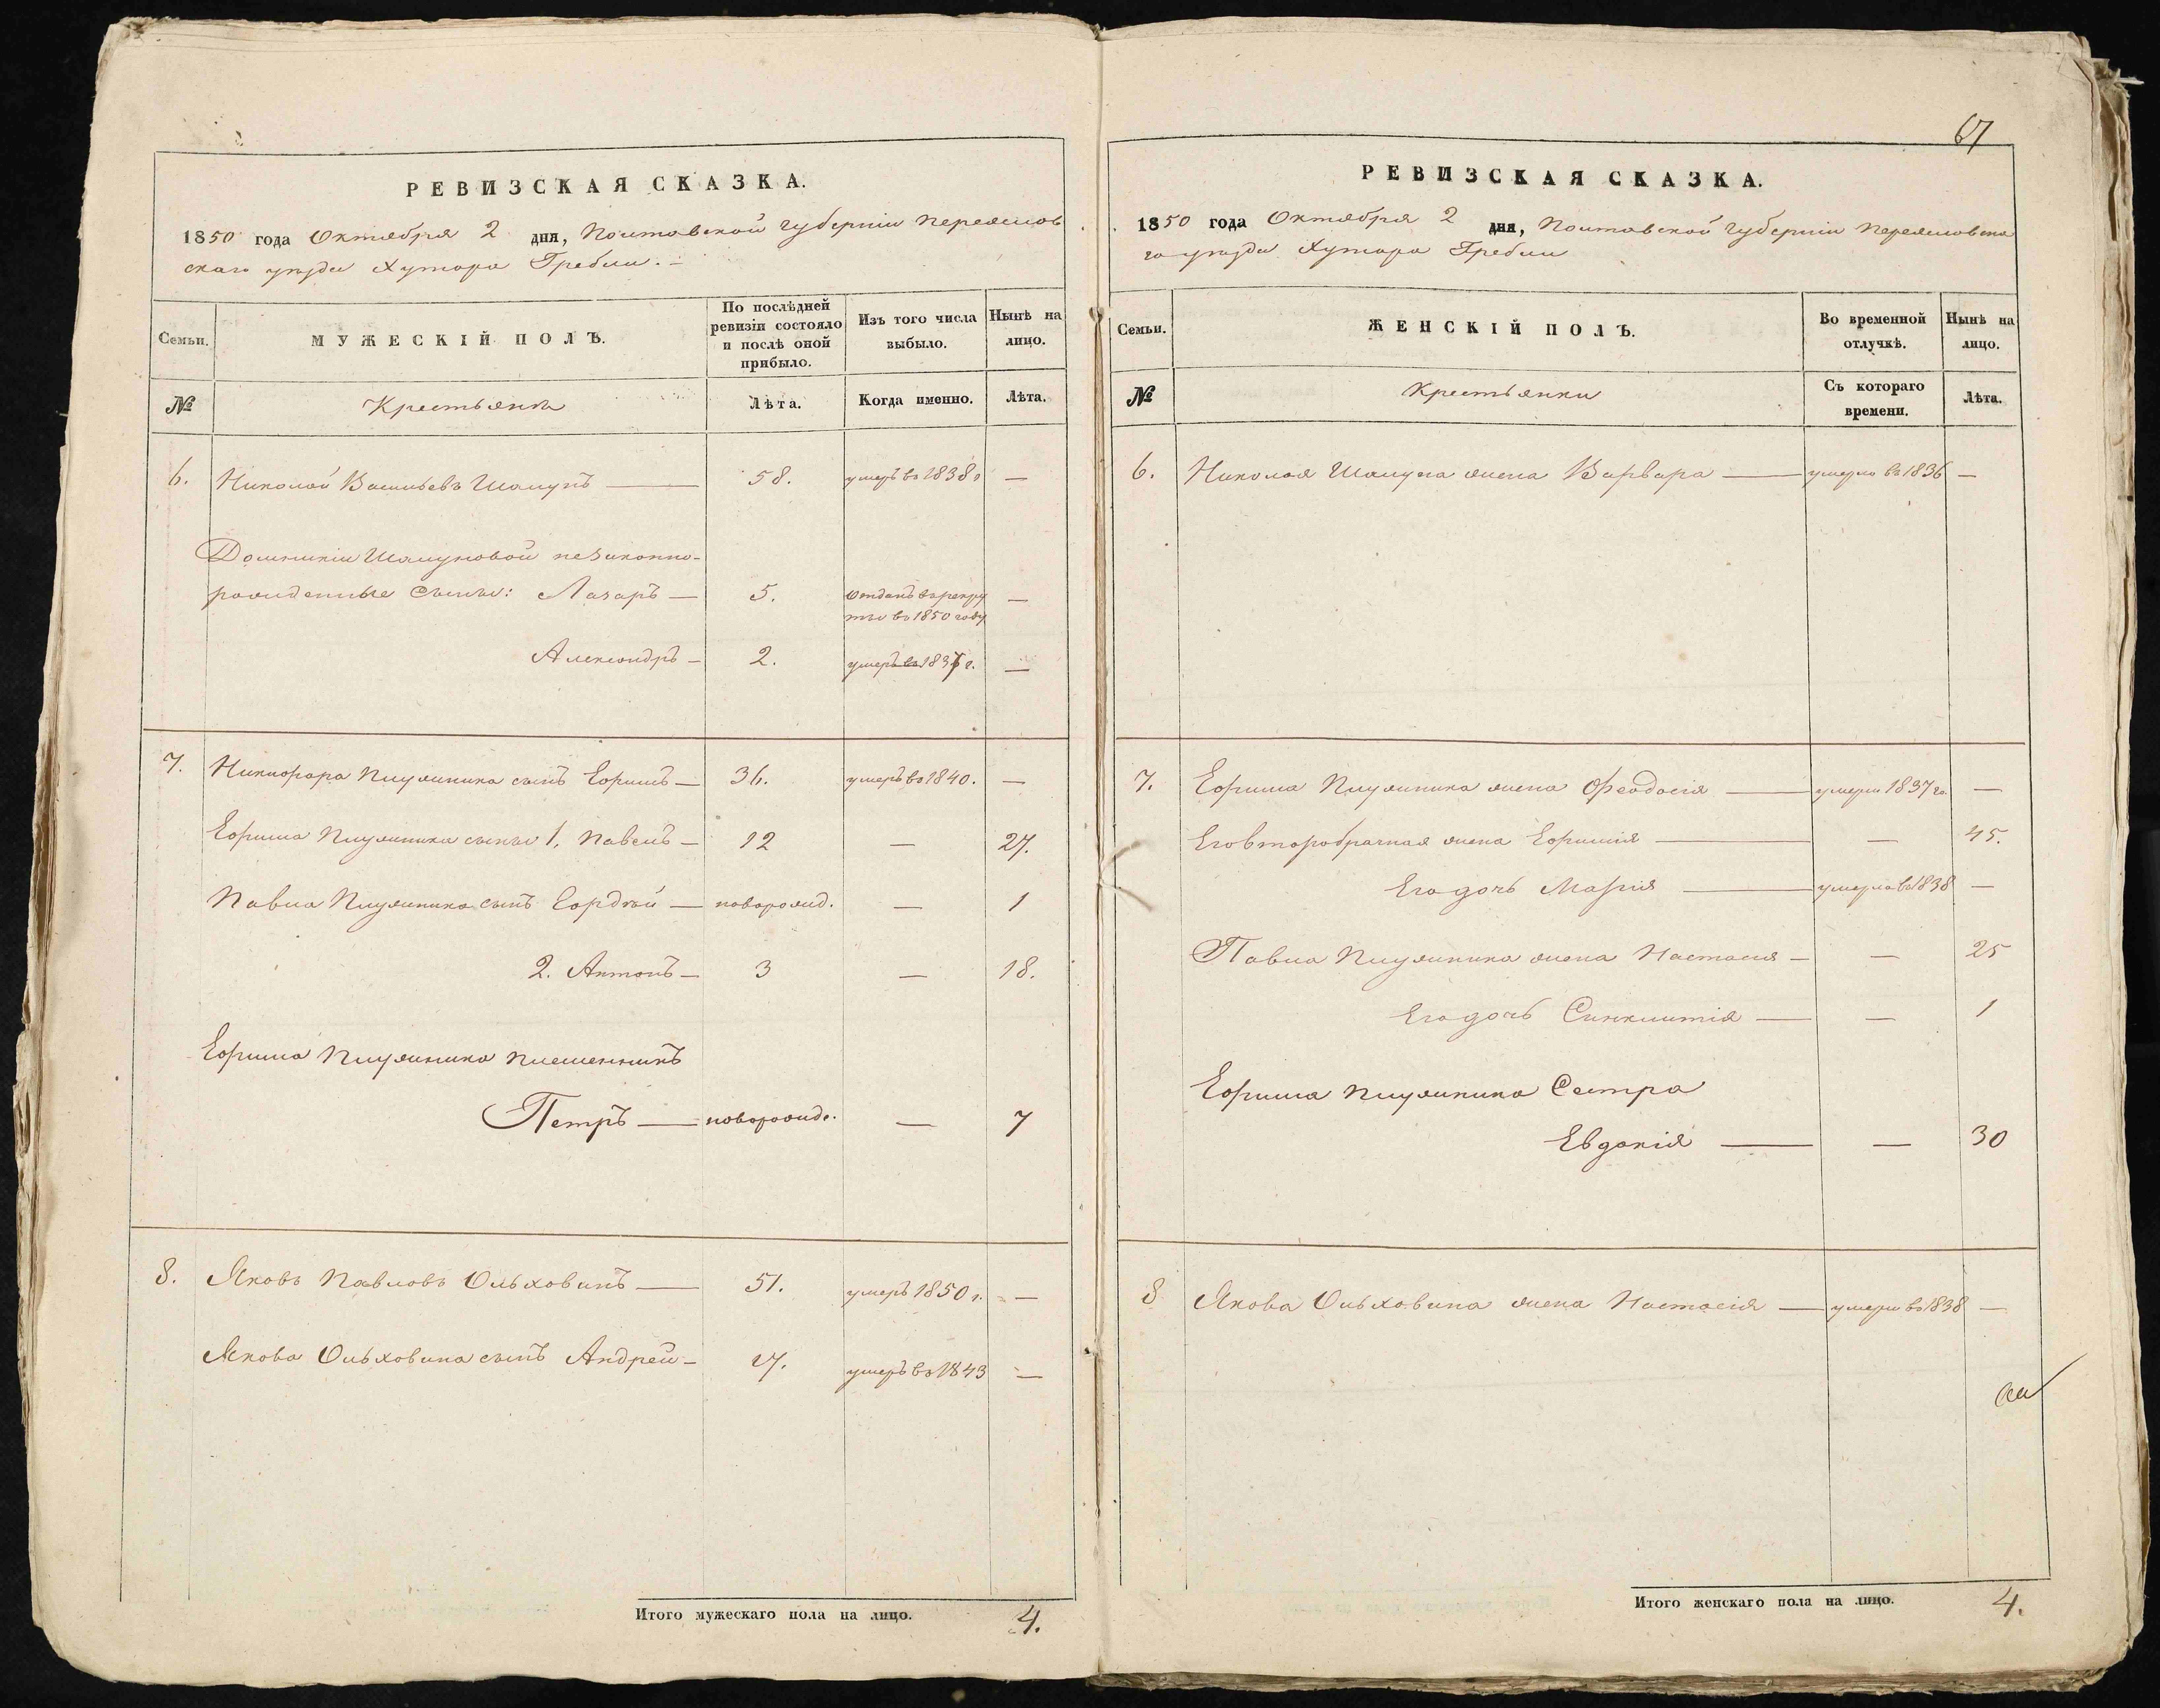 РЕВИЗСКАЯ СКАЗКА.
1850 года Октября 2 дня, Полтавской губерніи Переяслов
скаго уезда Хутора Гребли. –
Семьи.
МУЖЕСКІЙ ПОЛЪ.
По послѣдней
ревизіи состояло
и послѣ оной
прибыло.
Изъ того числа
выбыло.
Нынѣ на
лицо.
№
Крестьяне
Лѣта.
Когда именно.
Лѣта.
6. Николай Васильевъ Шалунъ — 58. умеръ въ 1838 —
Домникіи Шалуновой незаконно-
рожденные сыны: Лазарь — 5. отданъ въ рекру
ты въ 1850 году —
Александръ — 2. умеръ въ 1837 г. —
7. Никифора сынъ Ефимъ — 36. умеръ въ 1840. —
Ефима сыны 1. Павелъ — 12 — 27.
Павла сынъ Гордѣй — новорожд. — 1
2. Антонъ — 3 — 18.
Ефима племенникъ
Петръ — новорожд. — 7
8. Яковъ Павловъ Ольховикъ — 51. умеръ 1850 г. —
Якова Ольховика сынъ Андрей — 17. умеръ въ 1843 —
Итого мужескаго пола на лицо. 4.
67
РЕВИЗСКАЯ СКАЗКА.
1850 года Октября 2 дня, Полтавской губерніи Переясловска
го уезда Хутора Гребли
Семьи.
ЖЕНСКІЙ ПОЛЪ.
Во временной
отлучкѣ.
Нынѣ на
лицо.
№
Крестьянки
Съ котораго
времени.
Лѣта.
6. Николая Шалуна жена Варвара — умерла въ 1836 —
7. Ефима жена Феодосія — умерла 1837 го —
Его второбрачная жена Ефимія — — 45.
Его дочь Марія — умерла въ 1838 —
Павла жена Настасія — — 25
Его дочь Синклитія — — 1
Ефима Сестра
Евдокія — — 30
8 Якова Ольховика жена Настасія — умерла въ 1838 —
Итого женскаго пола на лицо. 4.